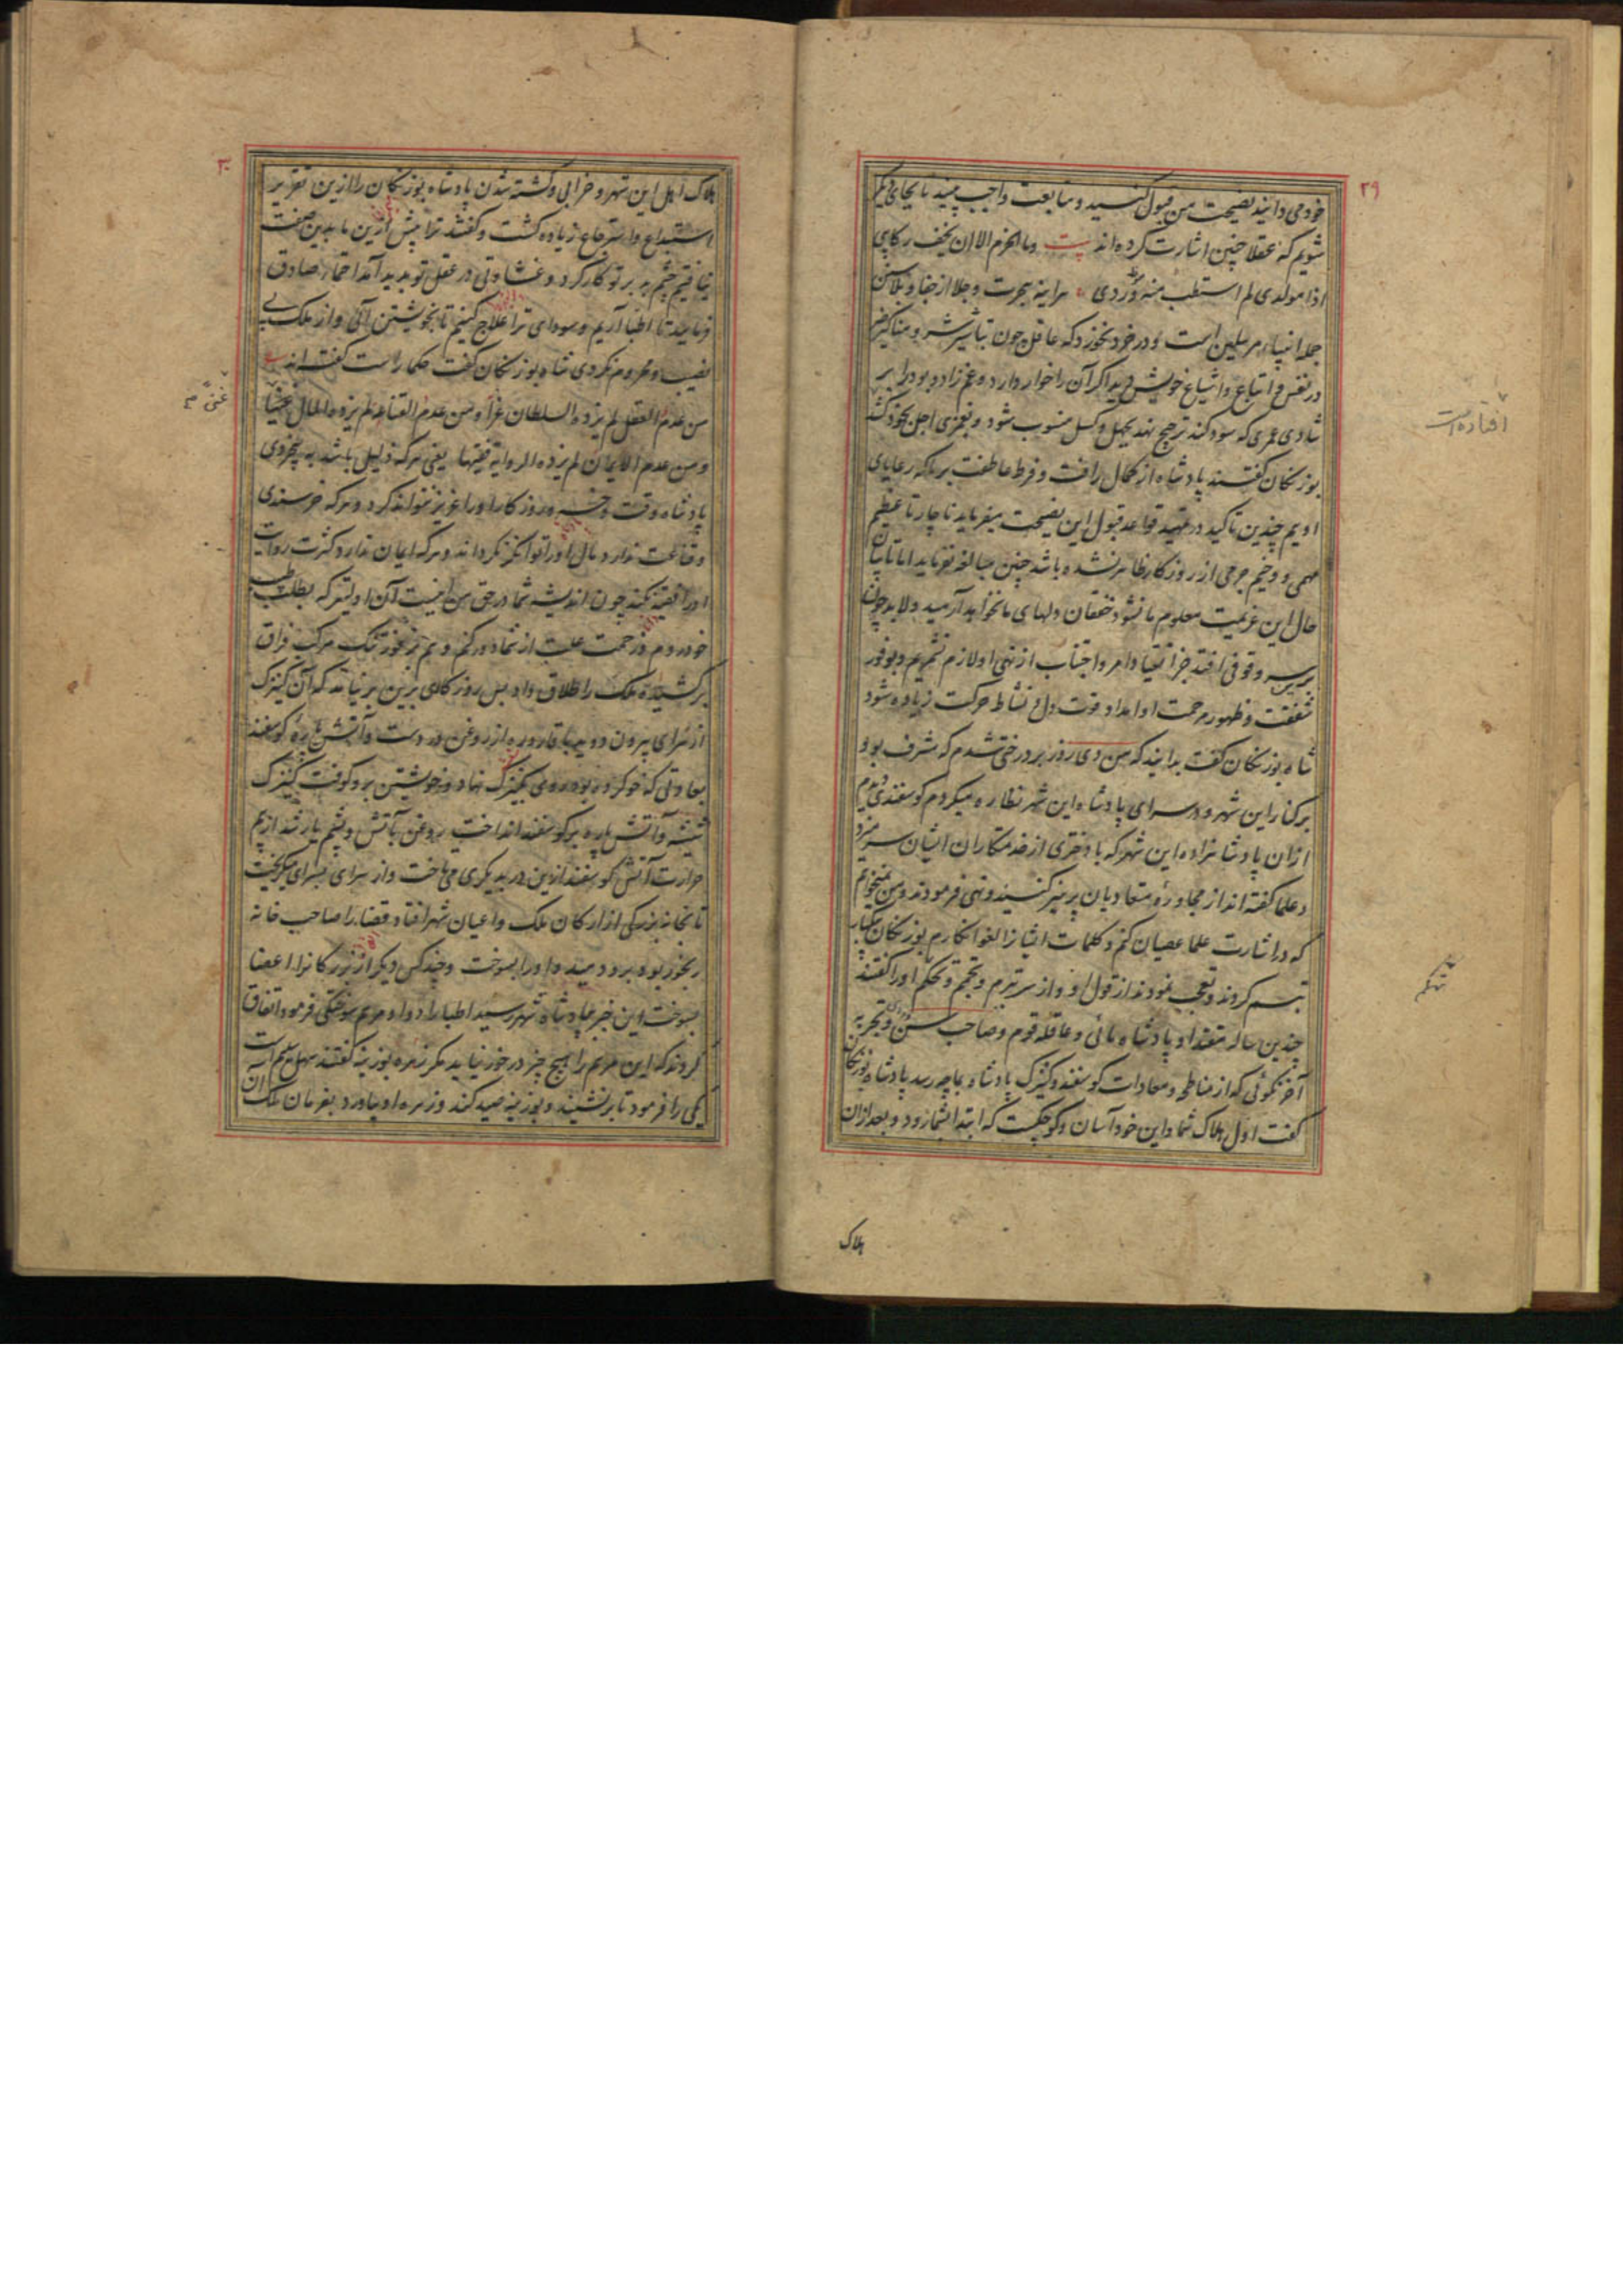 ۲۹
خود می دانید نصیحت من قبول کنید و متابعت واجب بینید تا بجای دیگر
شویم که عقلا چنین اشارت کرده اند بیت وما الحزم الا ان یخف رکابی
اذا مولدی لم استطب منه وردی هراینه هجرت و جلا از جفا و بلا سنن
جمله انبیا و مرسلین است و در خود نخورد که عاقل چون تباشیر شر و مناکیر ضر
در نفس و اتباع و اشیاع خویش دید اگر آن را خوار دارد و غم زاد و بود را بر
شادی عمری که سود کند ترجیح نهد بجهل و کسل منسوب شود و بغمزی اجل بخود کشد
بوزنگان گفتند پادشاه از کمال رافت و فرط عاطفت بر ما که رعایای
اویم چندین تاکید در تمهید قواعد قبول این نصیحت میفرماید ناچار تا عظیم
مهمی و وخیم جرمی از روزگار ظاهر نشده باشد چنین مبالغه نفرماید اما تا تبیان
حال این عزیمت معلوم ما نشود خفقان دلهای ما نخواهد آرمید و لابد چون
بر سر وقوفی افتد جز انقیاد امر و اجتناب از نهی او لازم نشمریم و بوفور
شفقت و ظهور مرحمت او امداد قوت دل و نشاط حرکت زیاده شود
شاه بوزنگان گفت بدانید که من دی روز بر درختی شدم که مشرف بود
بر کنار این شهر و در سرای پادشاه این شهر نظاره میکردم گوسفندی دیدم
ازان پادشاهزاده این شهر که با دختری از خدمتکاران ایشان سر میزد
و علما گفته اند از مجاوره متعادیان پرهیز کنید و نهی فرمودند و من نمیخواهم
که در اشارت علما عصیان کنم و کلمات ایشانرا لغو انگارم بوزنگان یکبار
تبسم کردند و تعجب نمودند از قول او و از سر تبرم و تجهم و تحکم او را گفتند
چندین ساله مقتدا و پادشاه مائی و عاقله قوم و صاحب سن و تجربه
آخر نگوئی که از مناطحه و معادات گوسفند و کنیزک پادشاه بما چه رسد پادشاه بوزنگان
گفت اول هلاک شما و این خود آسان و کوچکست که ابتدا بشما رود و بعد ازان
هلاک
افتاده است
تهکم
۳۰
هلاک اهل این شهر و خرابی و کشته شدن پادشاه بوزنگان را ازین تقریر
استبداع و استرجاع زیاده گشت و گفتند ترا پیش ازین ما بدین صفت
نیافتیم چشم بد بر تو کار کرد و غشاوتی در عقل تو پدید آمد احتماء صادق
فرمایید تا اطبا آریم و سودای ترا علاج کنیم تا بخویشتن آئی و از ملک بی
نصیب و محروم نگردی شاه بوزنگان گفت حکما راست گفته اند
من عدم العقل لم یزده السلطان عزا و من عدم القناعة لم یزده المال غنیا
و من عدم الایمان لم یزده الروایة فقیها یعنی هرکه ذلیل باشد به بیخردی
پادشاه وقت و خسرو روزگار او را عزیز نتواند کرد و هرکه خرسندی
و قناعت ندارد مال او را توانگر نگرداند و هرکه ایمان ندارد کثرت روایت
او را فقیه نکند چون اندیشه شما در حق من اینست آن اولیتر که بطلب طبیب
خود روم و زحمت علت از شما دور کنم و هم بر فور تنگ مرکب فراق
برکشیده ملک را طلاق داد بس روزگاری برین برنیامد که آن کنیزک
از سرای بیرون دوید با قاروره از روغن در دست و آتش پاره گوسفند
بعادتی که خو کرده بود روی بکنیزک نهاد و خویشتن برو کوفت کنیزک
شیشه و آتش پاره بر گوسفند انداخت روغن بآتش و پشم یار شد از بیم
حرارت آتش گوسفند ازین در بدیگری می تاخت و از سرای بسرای میگریخت
تا بخانه بزرگی از ارکان ملک و اعیان شهر افتاد قضا را صاحب خانه
رنجور بود برو دمید و او را بسوخت و چند کس دیگر از بزرگانرا اعضا
بسوخت این خبر بپادشاه شهر رسید اطبا را دوا و مرهم سوختگی فرمود اتفاق
کردند که این مرهم را هیچ چیز در خور نیاید مگر زهره بوزینه گفتند سهل است
یکی را فرمود تا برنشیند و بوزینه صید کند و زهره او بیاورد بفرمان ملک آن
غنی صح